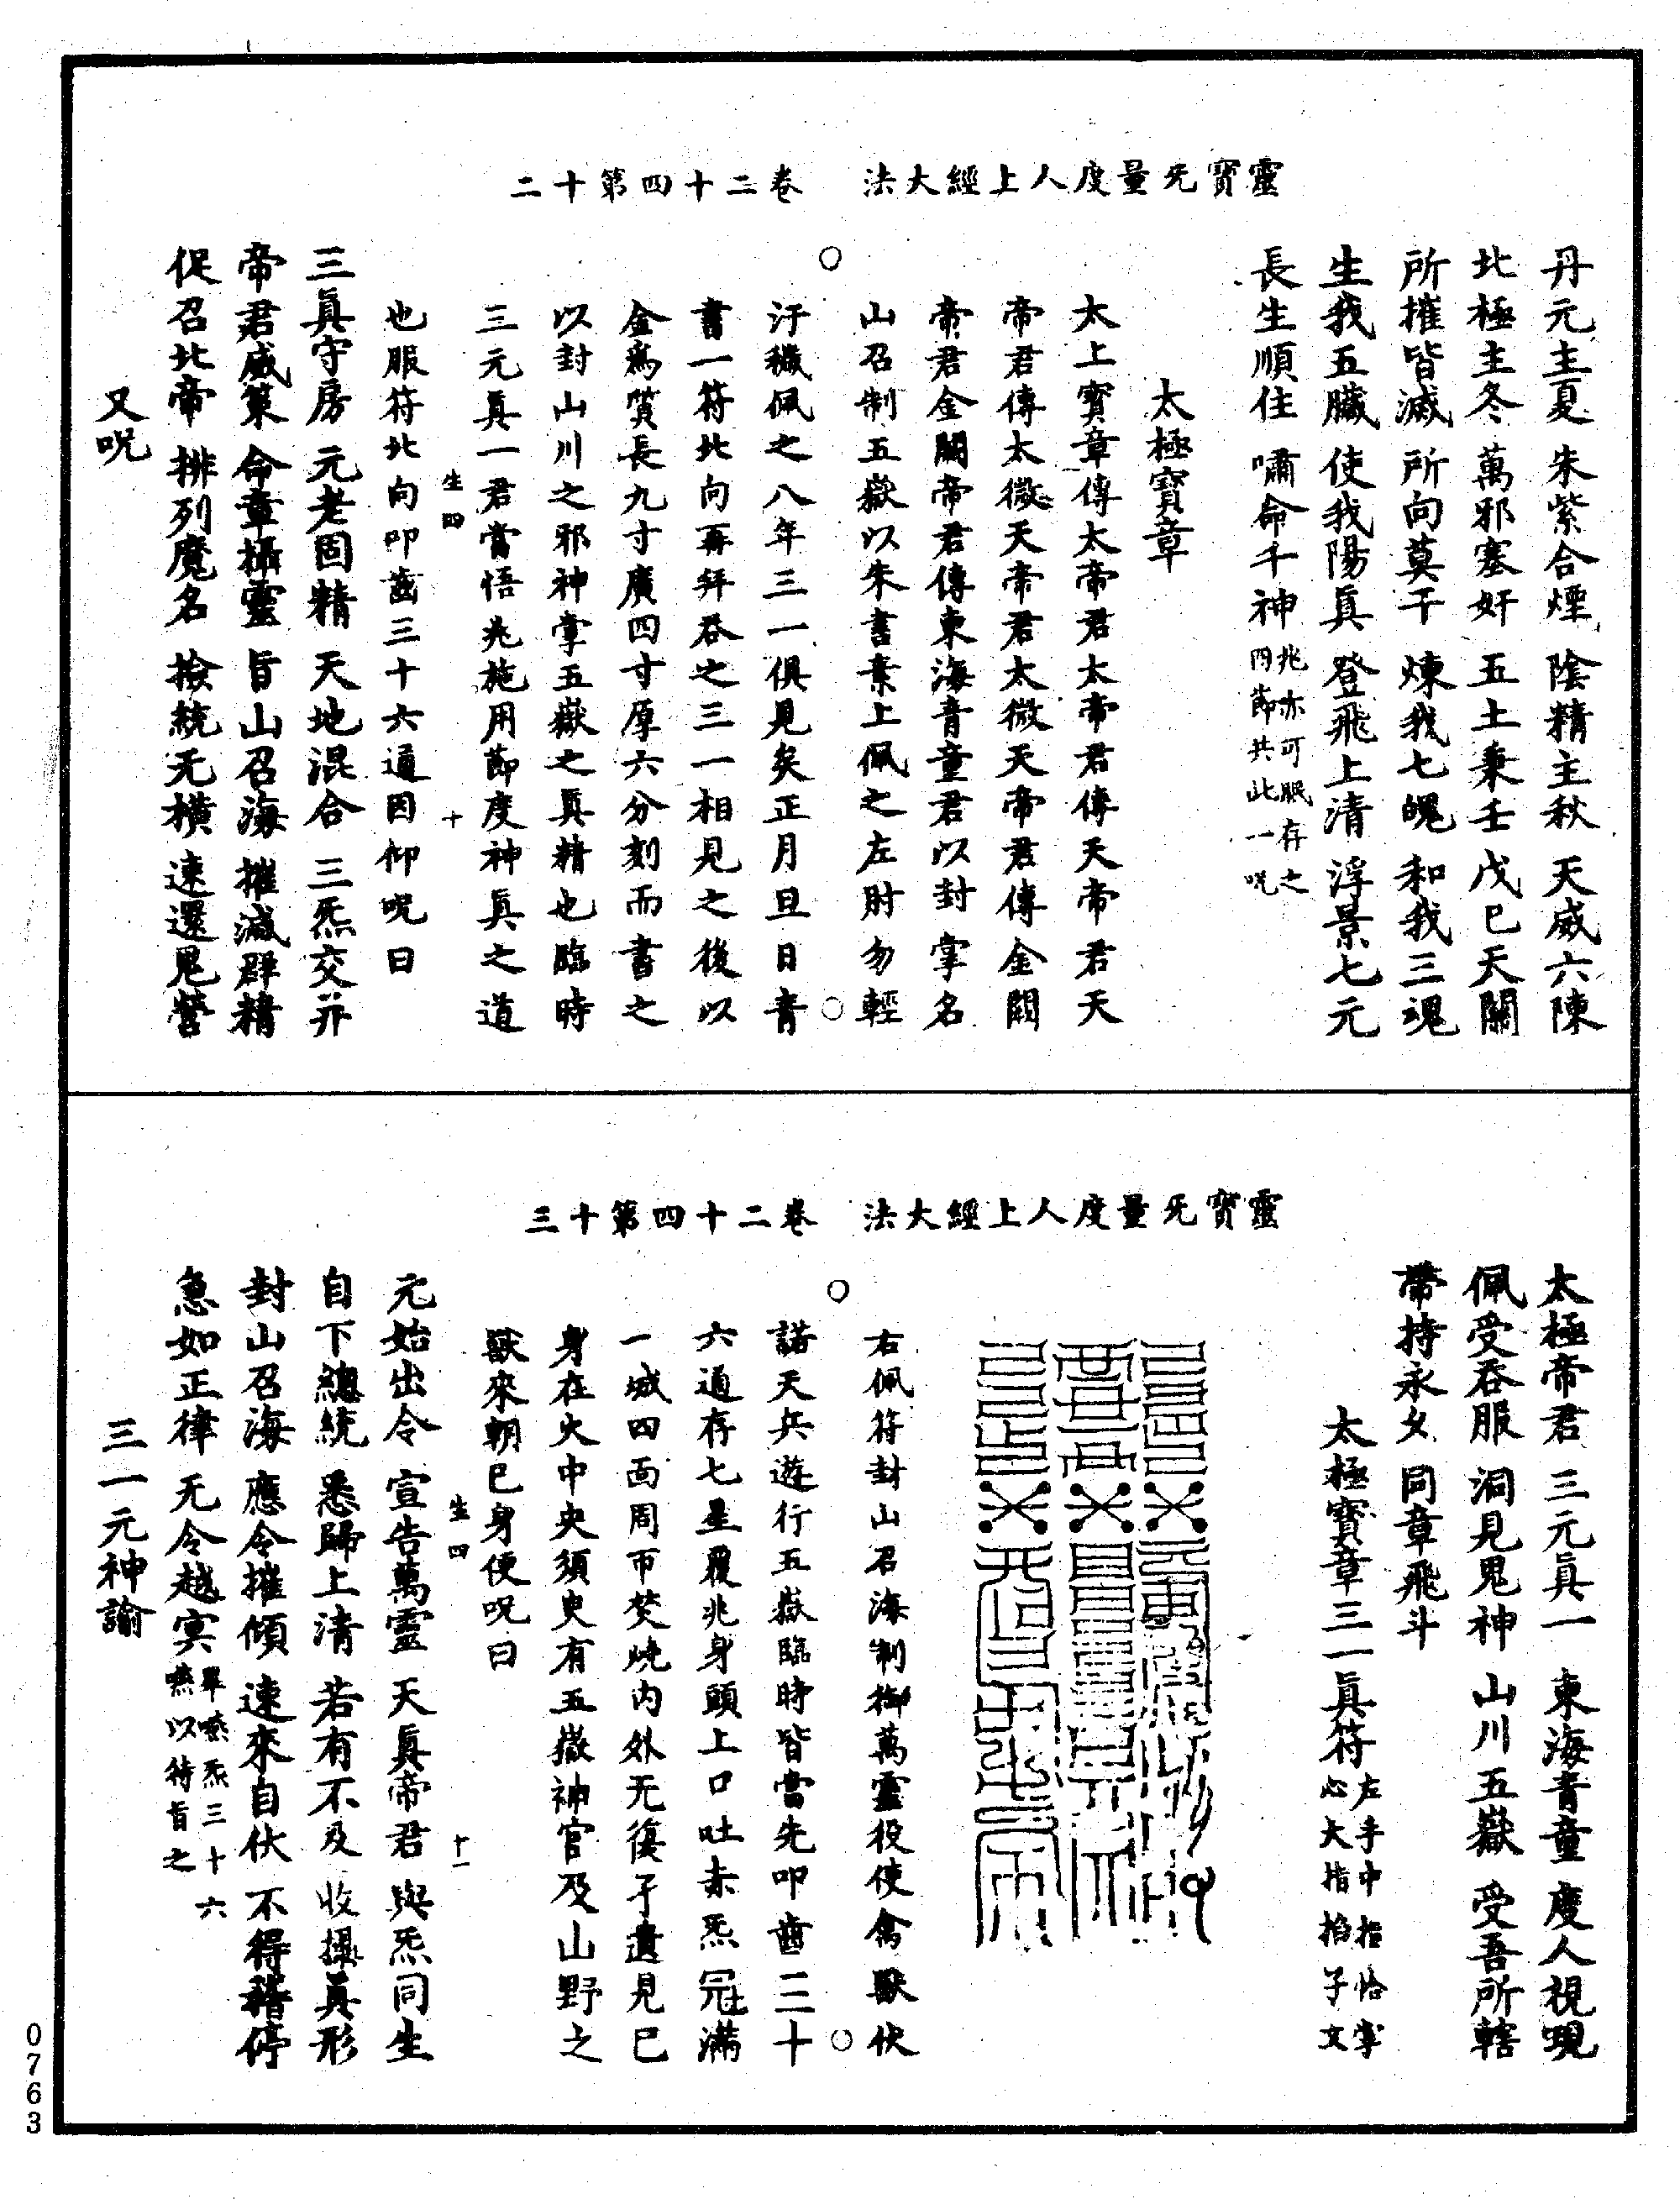 靈寶无量度人上經大法　卷二十四第十二
丹元主夏　朱紫合煙　陰精主秋　天威六陳
北極主冬　萬邪塞奸　五土秉壬　戊巳天關
所摧皆滅　所向莫干　煉我七魄　和我三魂
生我五臟　使我陽眞　登飛上清　浮景七元
長生順住　嘯命千神兆亦可眠存之四節共此一呪
太極寶章
太上寶章傳太帝君太帝君傳天帝君天
帝君傳太微天帝君太微天帝君傳金闕
帝君金闕帝君傳東海青童君以封掌名
山召制五嶽以朱書素上佩之左肘勿輕
汙穢佩之八年三一俱見矣正月旦日青
書一符北向再拜吞之三一相見之後以
金爲質長九寸廣四寸厚六分刻而書之
以封山川之邪神掌五嶽之眞精也臨時
三元眞一君當悟兆施用節度神眞之道
生四　十
也服符北向叩齒三十六通因仰呪曰
三眞守房　元老固精　天地混合　三炁交并
帝君威策　命章攝靈　旨山召海　摧滅群精
促召北帝　排列魔名　撿統无橫　速還鬼營
又呪
靈寶无量度人上經大法　卷二十四第十三
太極帝君　三元眞一　東海青童　度人視現
佩受吞服　洞見鬼神　山川五嶽　受吾所轄
帶持永久　同章飛斗
太極寶章三一眞符左手中指恰掌心大指掐子文
右佩符封山召海制御萬靈役使禽獸伏
諾天兵遊行五嶽臨時皆當先叩齒三十
六通存七星覆兆身頭上口吐赤炁冠上滿
一城四面周帀焚燒內外无復孑遺見已
身在火中央須臾有五嶽神官及山野之
獸來朝已身便呪曰
生四　十一
元始出令　宣告萬靈　天眞帝君　與炁同生
自下總統　悉歸上清　若有不及　收攝眞形
封山召海　應令摧傾　速來自伏　不得稽停
急如正律　无令越冥畢嚥炁三十六嚥以待旨之
三一元神諭
0763